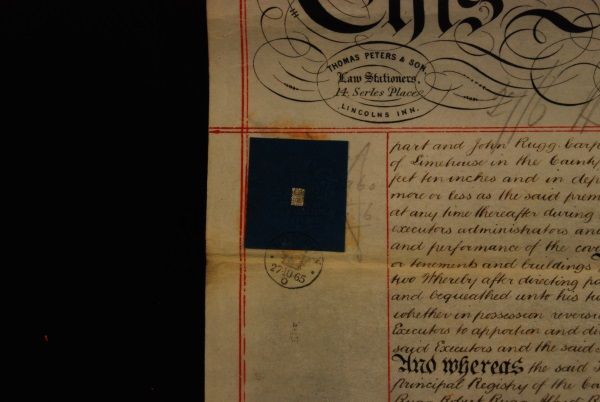 This
THOMAS PETERS & SON,
Law Stationers,
14 Serles Place
LINCOLNS INN.
part and John Rugg Carp
of Limehouse in the County
feet ten inches and in dep
more or less as the said prem
at any time thereafter during
executors administrators and
and performance of the cove
or tenements and buildings
two Whereby after directing pa
and bequeathed unto his tw
whether in possession reversio
Executors to apportion and di
said Executors and the said
And whereas the said
principal Registry of the Co
Rugg Robert Rugg
27·10·65